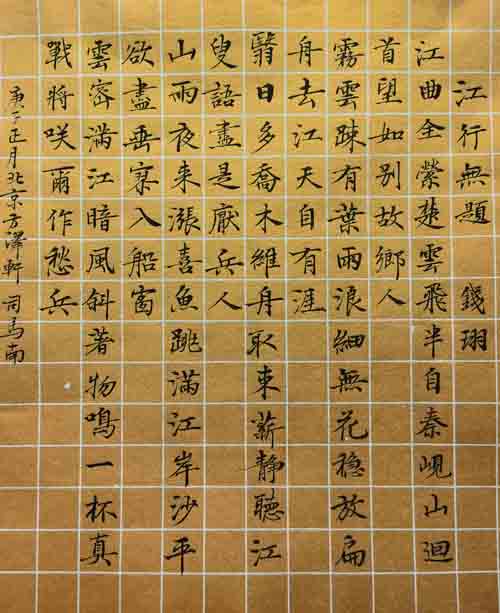 江行無題 錢珝
江曲全縈楚雲飛半自秦峴山迴
首望如别故鄉人
霧雲踈有葉雨浪細無花穏放扁
舟去江天自有涯
翳日多喬木維舟取束薪静聽江
叟語盡是厭兵人
山雨夜来漲喜魚跳滿江岸沙平
欲盡垂寥入船窗
雲密滿江暗風斜著物鳴一杯真
戰將咲爾作愁兵
庚子正月北京方澤軒 司馬南